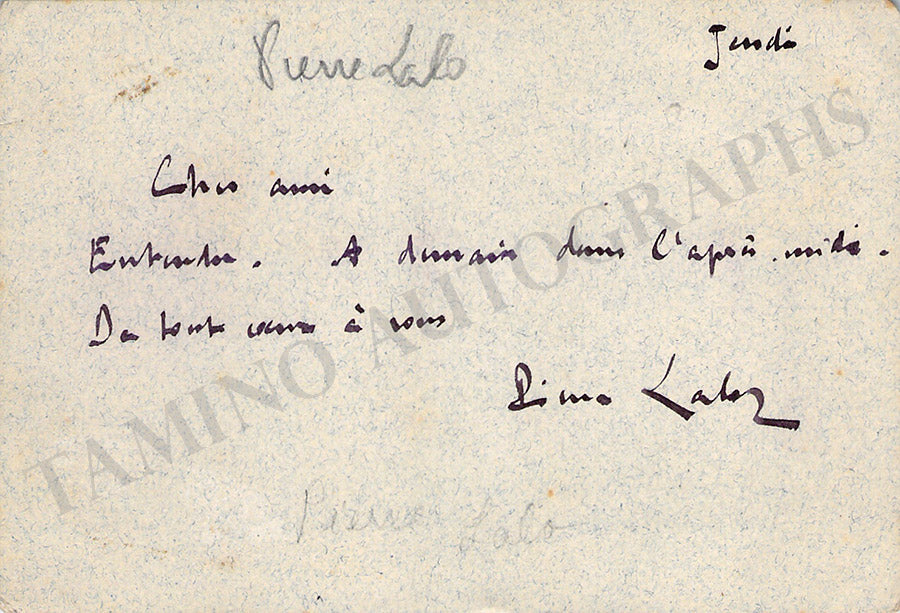 Pierre Lalo
Jeudi
Cher ami
Entendu. A demain dans l'après-midi.
De tout cœur à vous
Pierre Lalo
Pierre Lalo
TAMINO AUTOGRAPHS